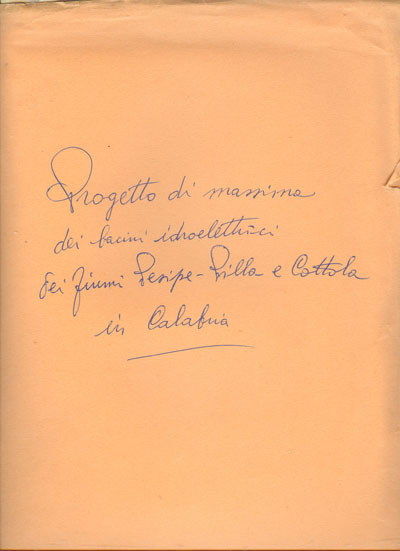 Progetto di massima
dei bacini idroelettrici
dei fiumi Pesipe-Pilla e Cottola
in Calabria